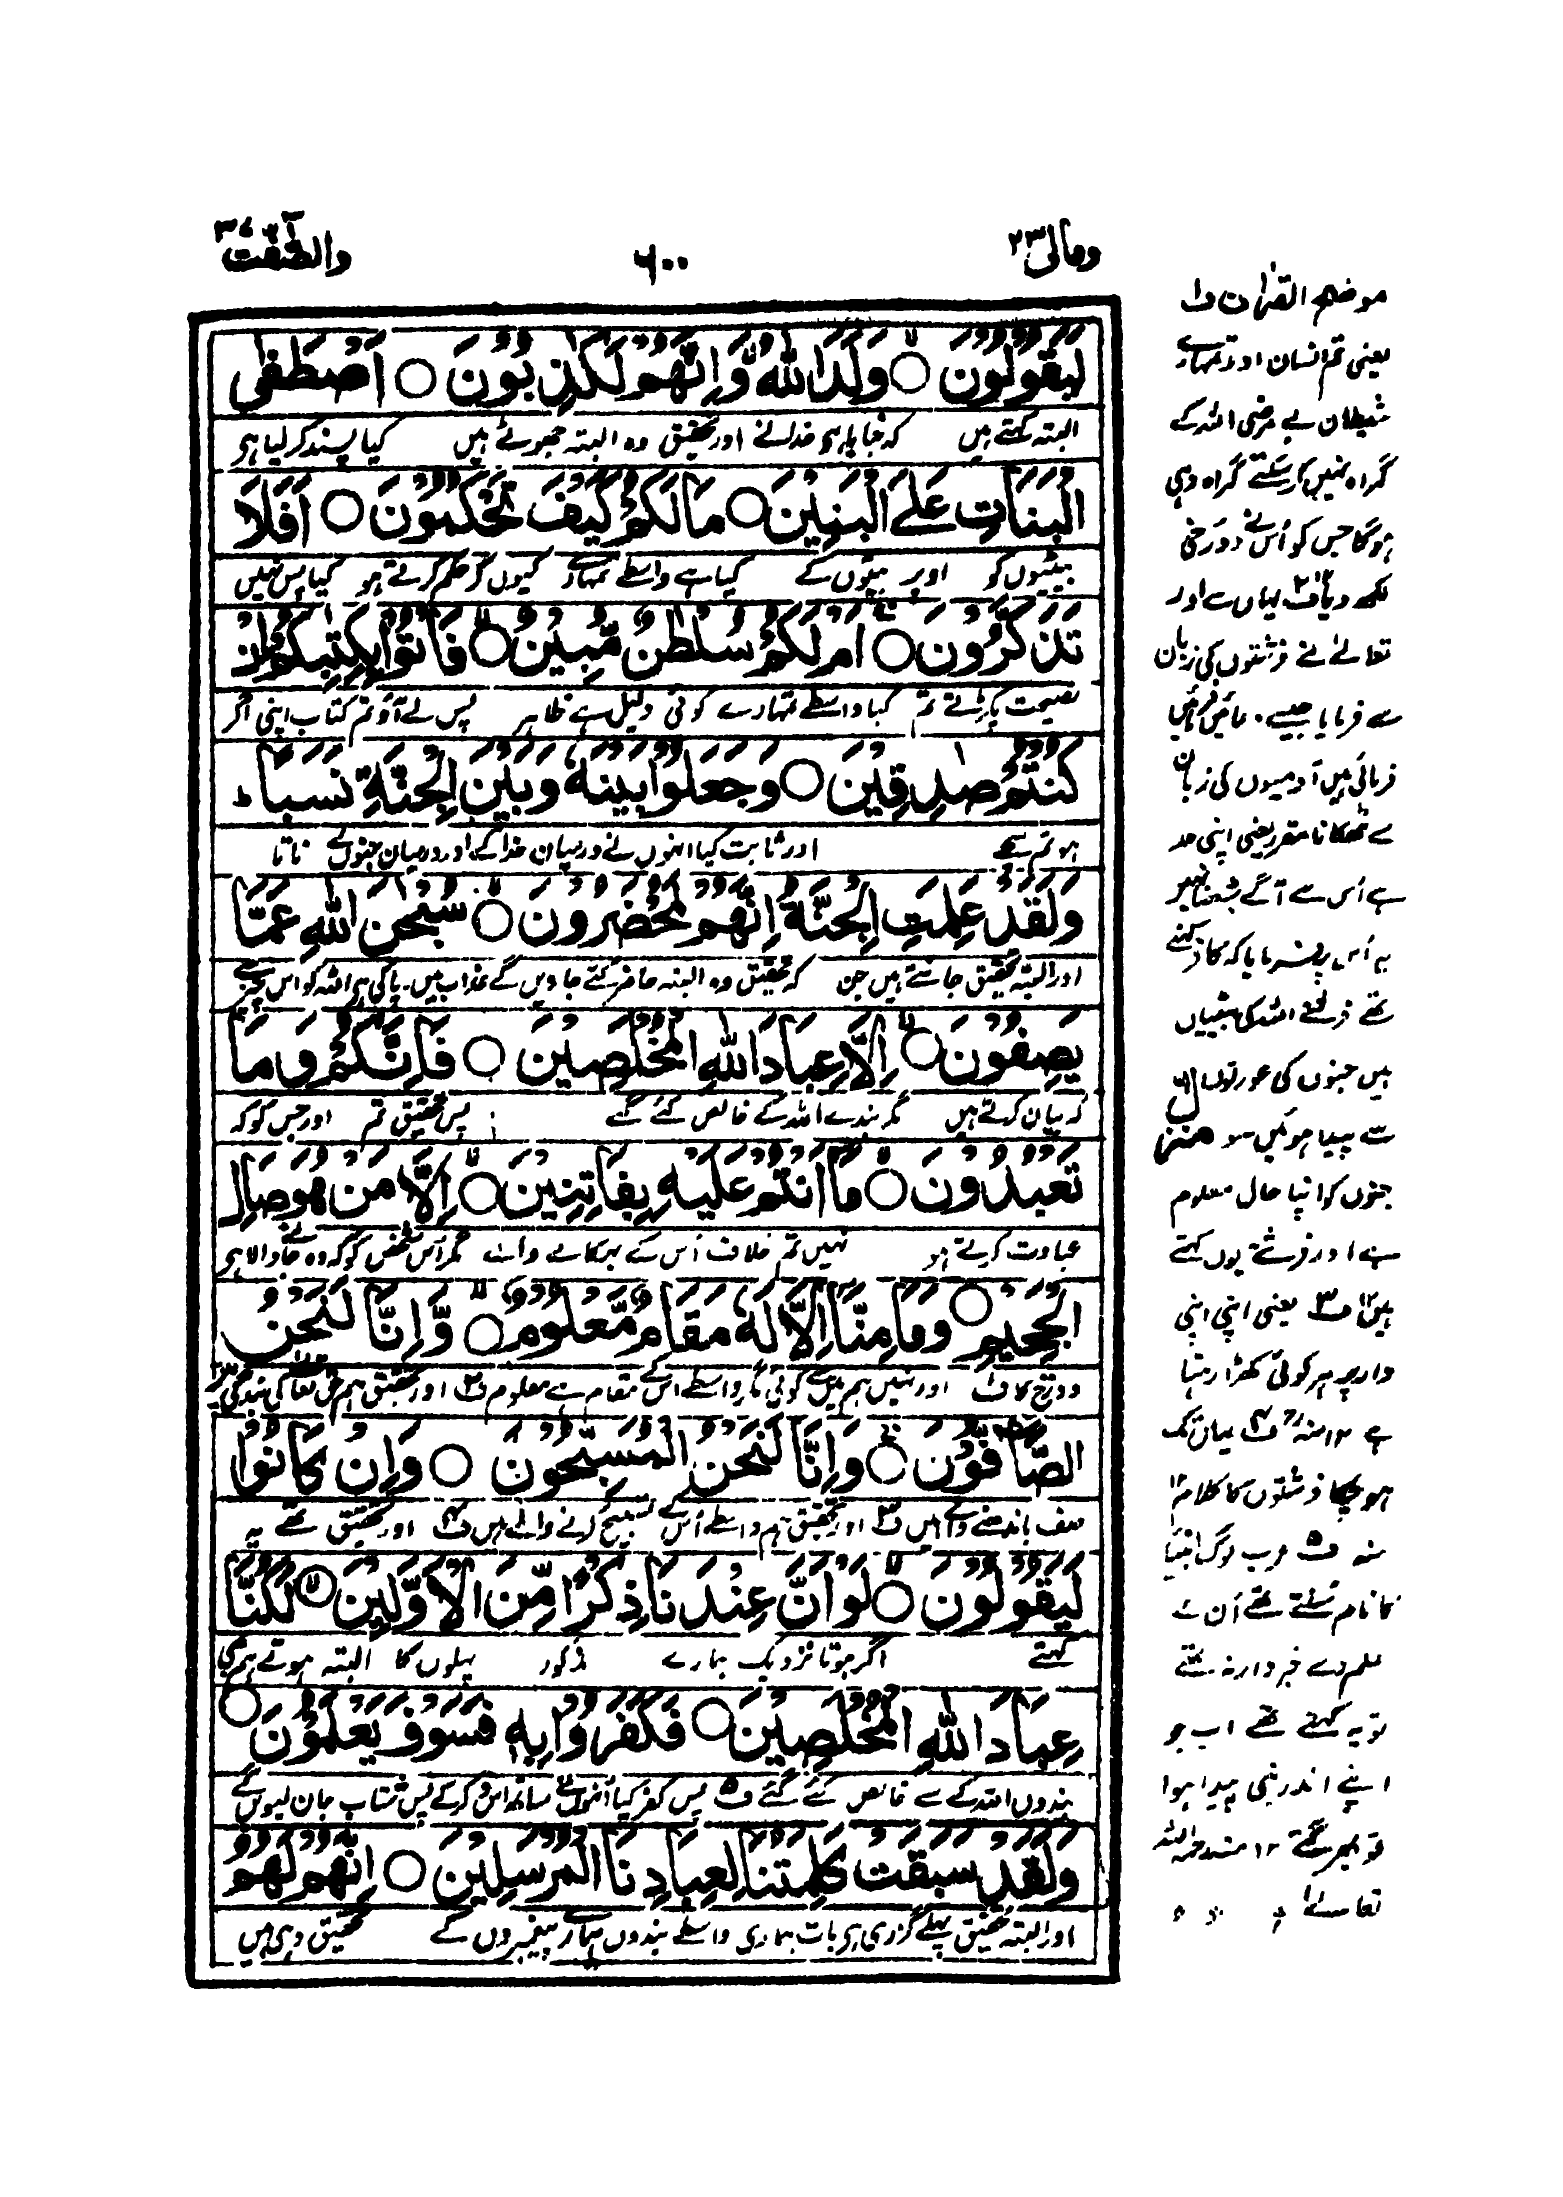 ومالی ۲۳
۶۰۰
والصّٰٓفّٰت ۳۷
لَیَقُوْلُوْنَ ○ وَلَدَ اللّٰهُ وَاِنَّهُمْ لَكٰذِبُوْنَ ○ اَصْطَفَی
البتہ کہتے ہیں کہ جنایا ہی خدا نے اور تحقیق وہ البتہ جھوٹے ہیں کیا پسند کر لیا ہی
الْبَنَاتِ عَلَی الْبَنِیْنَ ○ مَا لَكُمْ كَیْفَ تَحْكُمُوْنَ ○ اَفَلَا
بیٹیوں کو اوپر بیٹوں کے کیا ہے واسطے تمہارے کیوں کر حکم کرتے ہو کیا پس نہیں
تَذَكَّرُوْنَ ○ اَمْ لَكُمْ سُلْطٰنٌ مُّبِیْنٌ ○ فَاْتُوْا بِكِتٰبِكُمْ اِنْ
نصیحت پکڑتے تم کیا واسطے تمہارے کوئی دلیل ہے ظاہر پس لے آؤ تم کتاب اپنی اگر
كُنْتُمْ صٰدِقِیْنَ ○ وَجَعَلُوْا بَیْنَهٗ وَبَیْنَ الْجِنَّةِ نَسَبًا ط
ہو تم سچے اور ثابت کیا انہوں نے درمیان خدا کے اور درمیان جنوں کے ناتا
وَلَقَدْ عَلِمَتِ الْجِنَّةُ اِنَّهُمْ لَمُحْضَرُوْنَ ○ سُبْحٰنَ اللّٰهِ عَمَّا
اور البتہ تحقیق جانتے ہیں جن کہ تحقیق وہ البتہ حاضر کئے جاویں گے عذاب میں۔ پاکی ہی اللہ کو اس چیز سے
یَصِفُوْنَ ○ اِلَّا عِبَادَ اللّٰهِ الْمُخْلَصِیْنَ ○ فَاِنَّكُمْ وَمَا
کہ بیان کرتے ہیں مگر بندے اللہ کے خالص کئے گئے پس تحقیق تم اور جس کو کہ
تَعْبُدُوْنَ ○ مَا اَنْتُمْ عَلَیْهِ بِفَاتِنِیْنَ ○ اِلَّا مَنْ هُوَ صَالِ
عبادت کرتے ہو نہیں تم خلاف اُس کے بہکانے والے مگر اُس شخص کو کہ وہ جانے والا ہی
الْجَحِیْمِ ○ وَمَا مِنَّا اِلَّا لَهٗ مَقَامٌ مَّعْلُوْمٌ ○ وَّاِنَّا لَنَحْنُ
دوزخ کا ف۲ اور نہیں ہم میں سے کوئی مگر واسطے اس کے مقام ہے معلوم ف۳ اور تحقیق ہم
الصَّافُّوْنَ ○ وَاِنَّا لَنَحْنُ الْمُسَبِّحُوْنَ ○ وَاِنْ كَانُوْا
صف باندھنے والے ہیں ف۳ اور تحقیق ہم واسطے اُس کے تسبیح کرنے والے ہیں ف۴ اور تحقیق تھے یہ
لَیَقُوْلُوْنَ ○ لَوْ اَنَّ عِنْدَنَا ذِكْرًا مِّنَ الْاَوَّلِیْنَ ○ لَكُنَّا
کہتے اگر ہوتا نزدیک ہمارے مذکور پہلوں کا البتہ ہوتے ہم بھی
عِبَادَ اللّٰهِ الْمُخْلَصِیْنَ ○ فَكَفَرُوْا بِهٖ فَسَوْفَ یَعْلَمُوْنَ ○
بندوں اللہ کے سے خالص کئے گئے ف۵ پس کفر کیا اُنہوں نے ساتھ اُس کے پس شتاب جان لیویں گے
وَلَقَدْ سَبَقَتْ كَلِمَتُنَا لِعِبَادِنَا الْمُرْسَلِیْنَ ○ اِنَّهُمْ لَهُمُ
اور البتہ تحقیق پہلے گزری ہی بات ہماری واسطے بندوں ہمارے پیغمبروں کے تحقیق وہی ہیں
موضح القرآن ف۱
یعنی تم انسان اور تمہارے
شیطان بے مرضی اللہ کے
گمراہ نہیں کر سکتے گمراہ وہی
ہوگا جس کو اُس نے دوزخی
لکھ دیا ف۲ یہاں سے اور
تعالےٰ نے فرشتوں کی زبان
سے فرمایا جیسے
فرمائی ہیں آدمیوں کی زبان
سے ٹھکانا مقرر یعنی اپنی حد
ہے اُس سے آگے
یہ اُس پر فرمایا کہ کافر کہتے
تھے فرشتے اللہ کی بیٹیاں
ہیں جنوں کی عورتوں
سے پیدا ہوئیں سو
جنوں کو اپنا حال معلوم
ہے اور فرشتے یوں کہتے
ہیں ف۳ یعنی اپنی اپنی
پر ہر کوئی کھڑا رہتا
ہے ۱۲ منہ ف۴ یہاں تک
ہو چکا فرشتوں کا کلام ۱۲
منہ ف۵ عرب لوگ انبیا
کا نام سنتے تھے اُن کے
علم سے خبردار نہ تھے
تو یہ کہتے تھے اب جو
اپنے اندر نبی پیدا ہوا
تو پھر گئے ۱۲ منہ رحمہ اللہ
تعالےٰ
منزل ۶